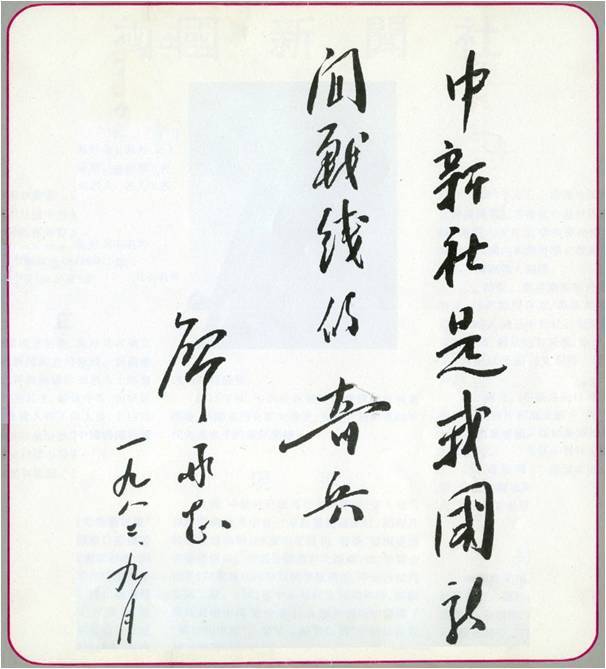 中新社是我國新
闻戰线的奇兵
廖承志
一九八二、九月